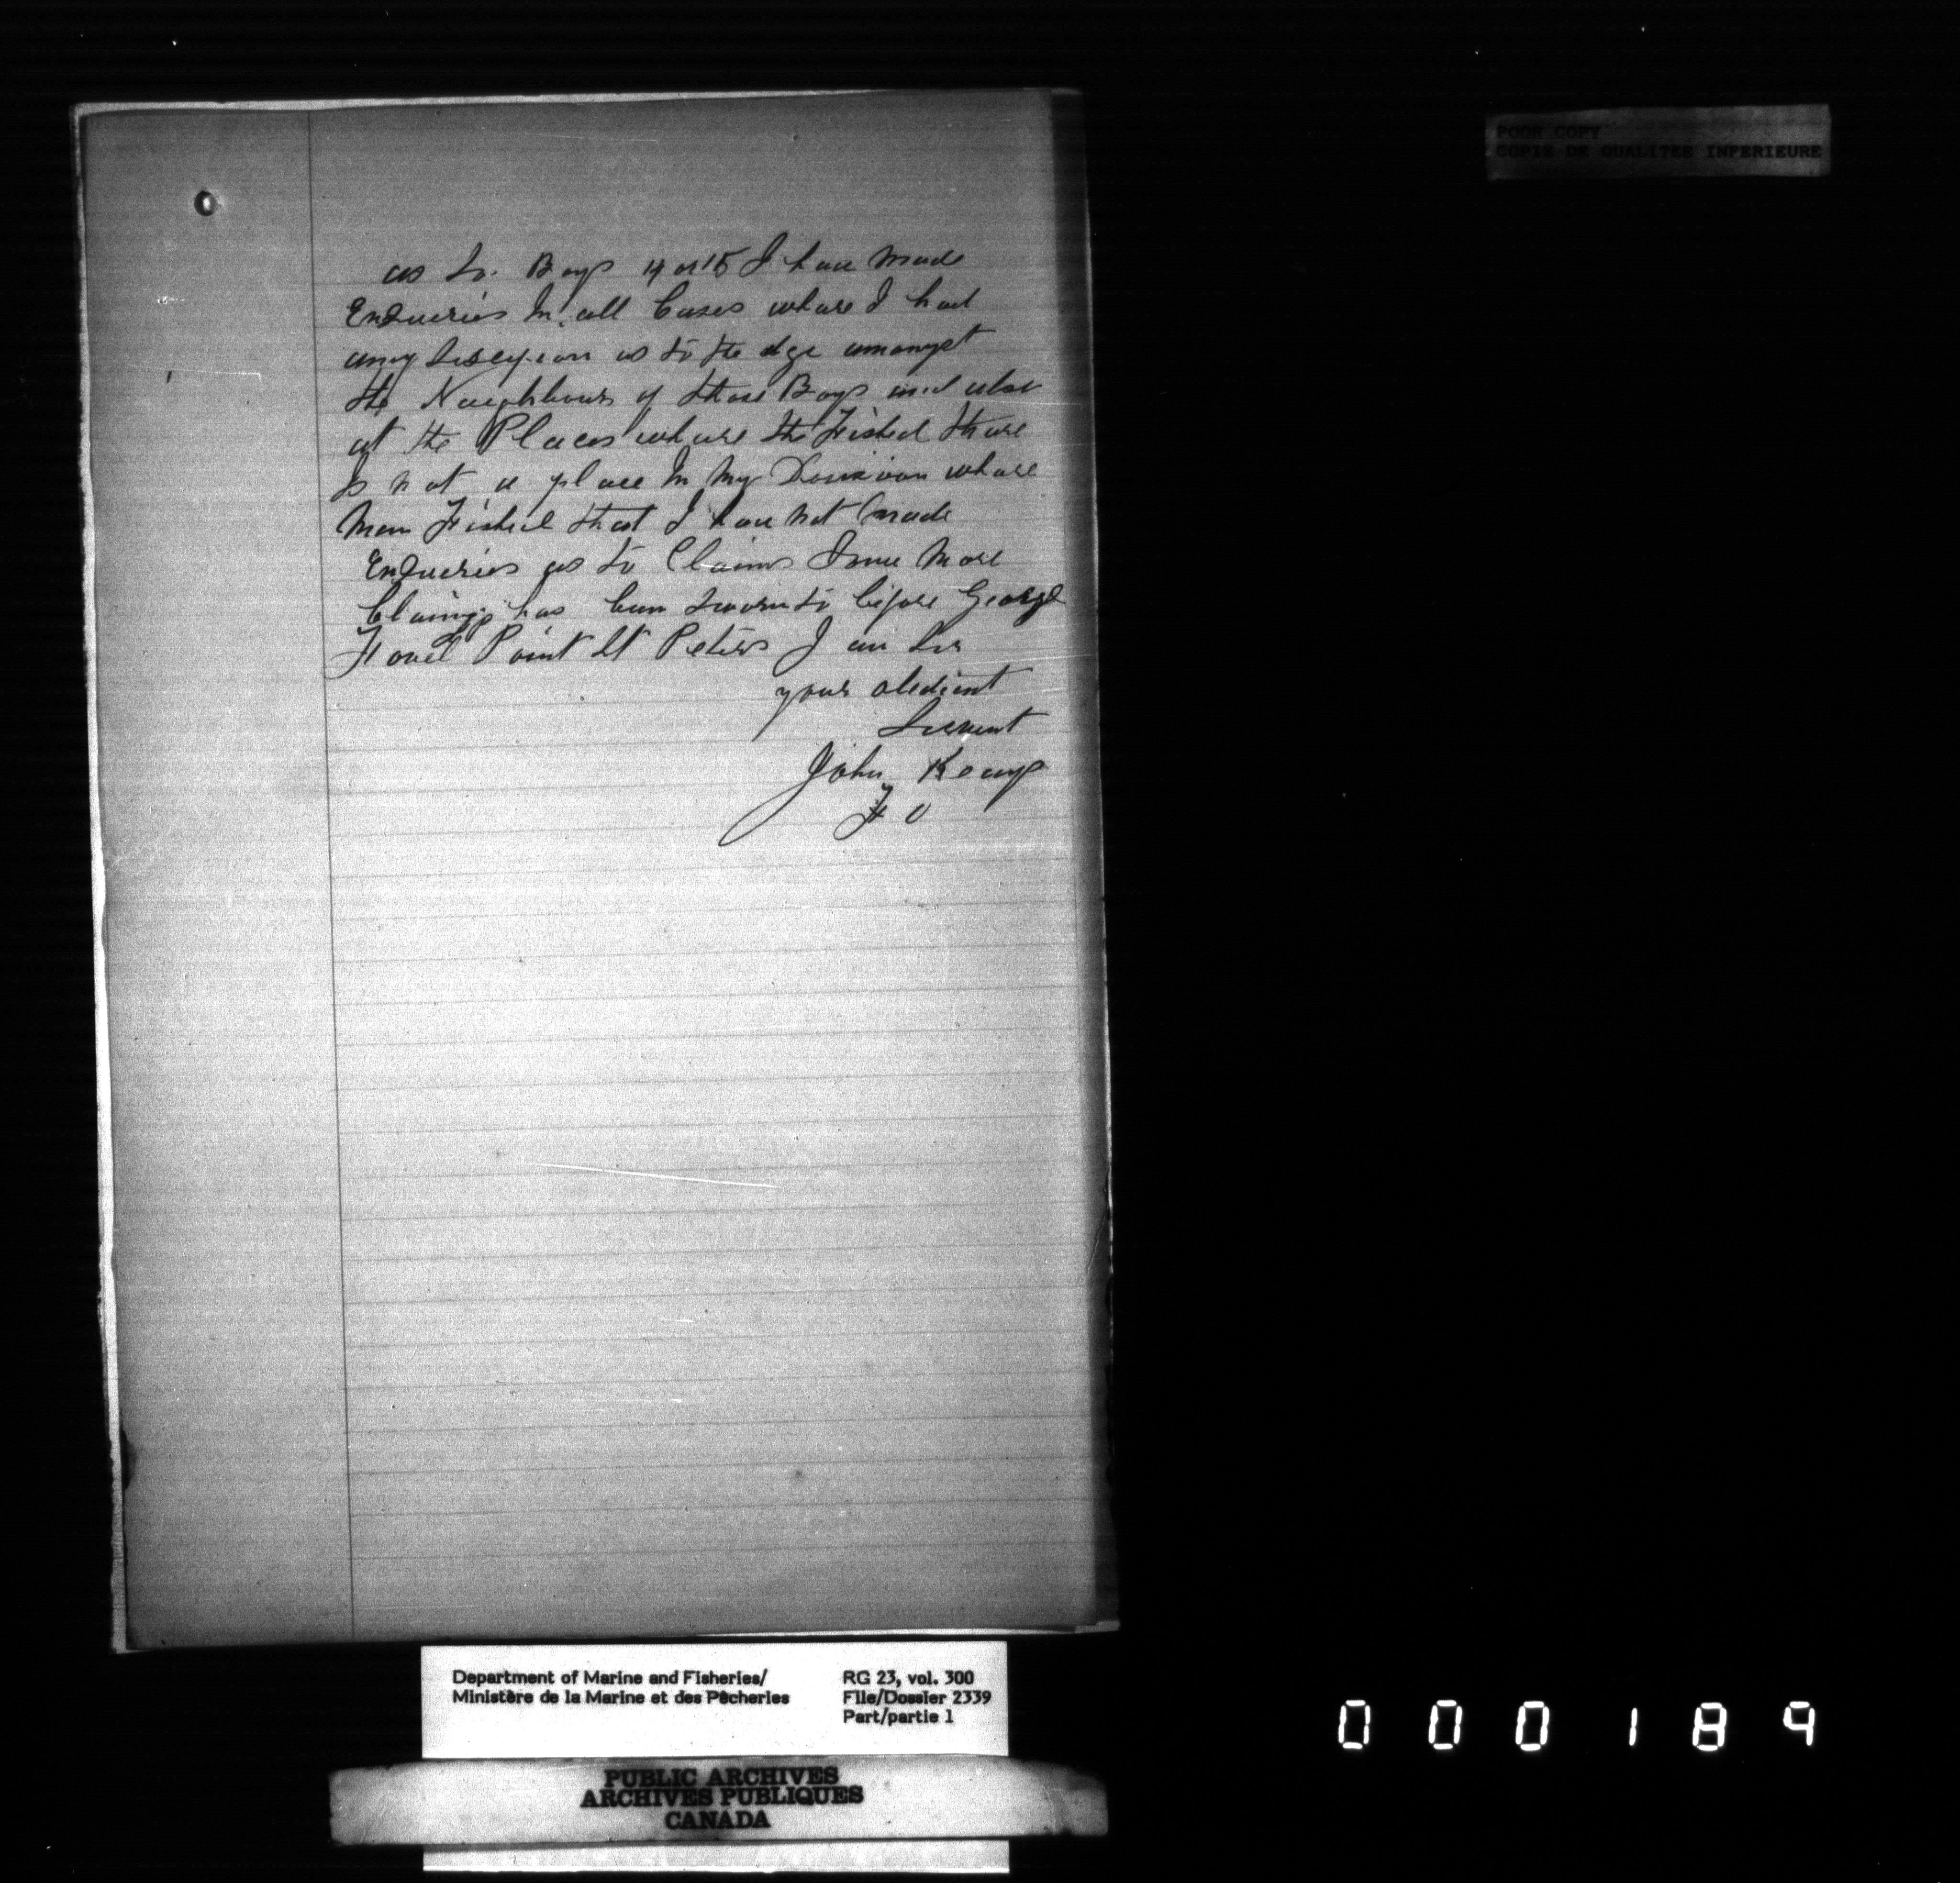 as to Boys 14 or 15 I have Made
Enqueries In all Cases whare I had
any as to the Age amongst
the Neighbours of those Boys and also
at the Places whare the Fished thare
Is not a place In My Division whare
Men Fished that I have Not Made
Enqueries as to Claims Some More
Claims has been Sworn to before George
Fovel Point St Peters I am Sir
your obedient
Servent
John Kemp
F O
POOR COPY
COPIE DE QUALITEE INFERIEURE
Department of Marine and Fisheries/
Ministère de la Marine et des Pêcheries
RG 23, vol. 300
File/Dossier 2339
Part/partie 1
PUBLIC ARCHIVES
ARCHIVES PUBLIQUES
CANADA
000189